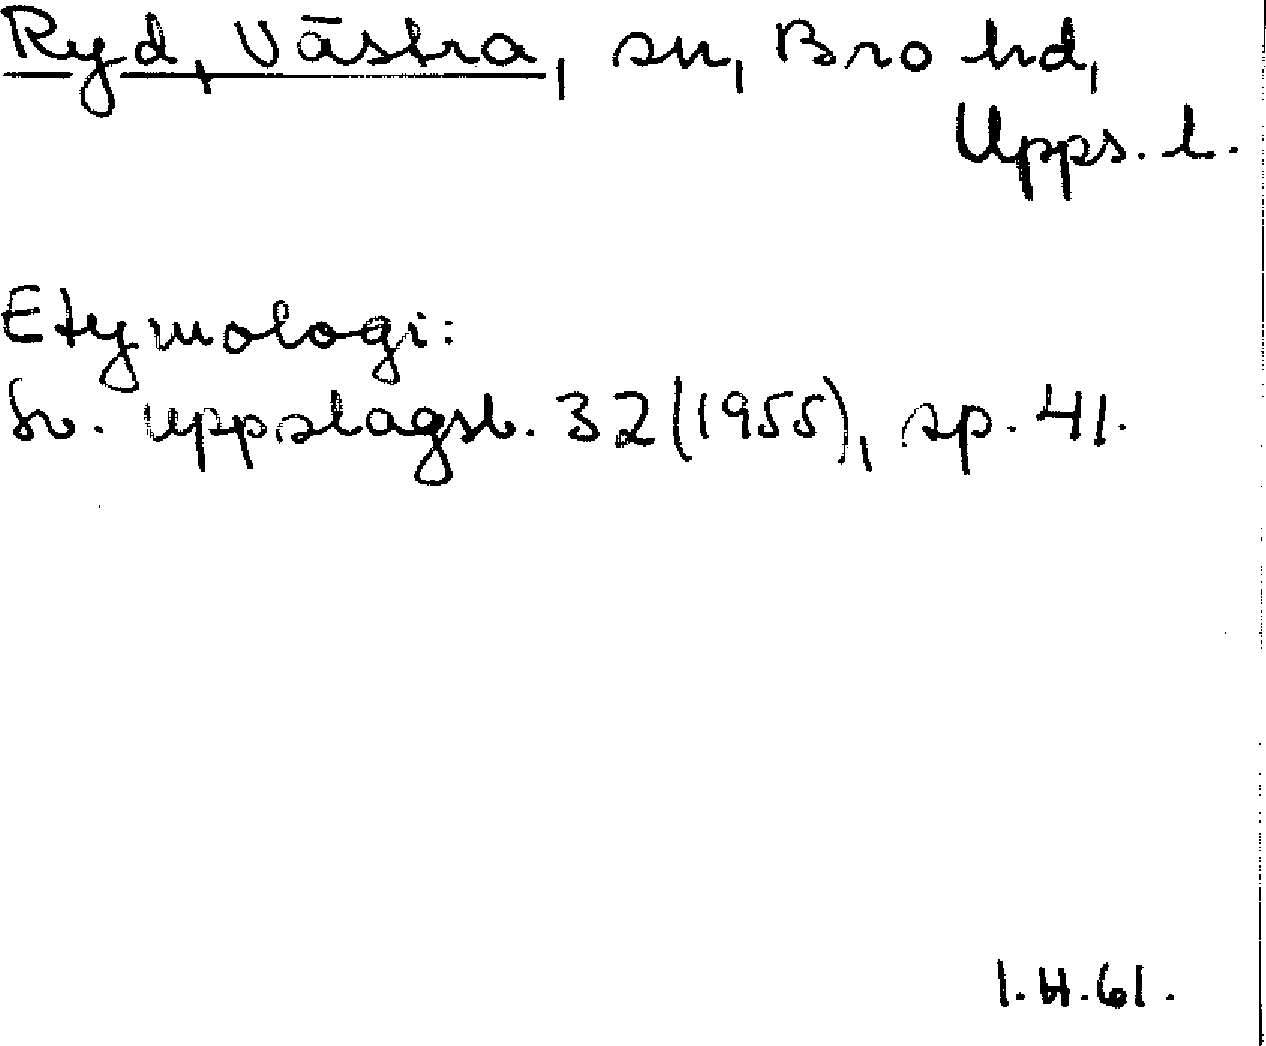 Ryd, Västra, sn, Bro hd,
Upps. l.
Etymologi:
Sv. uppslagsb. 32 (1955), sp. 41.
I.H.61.